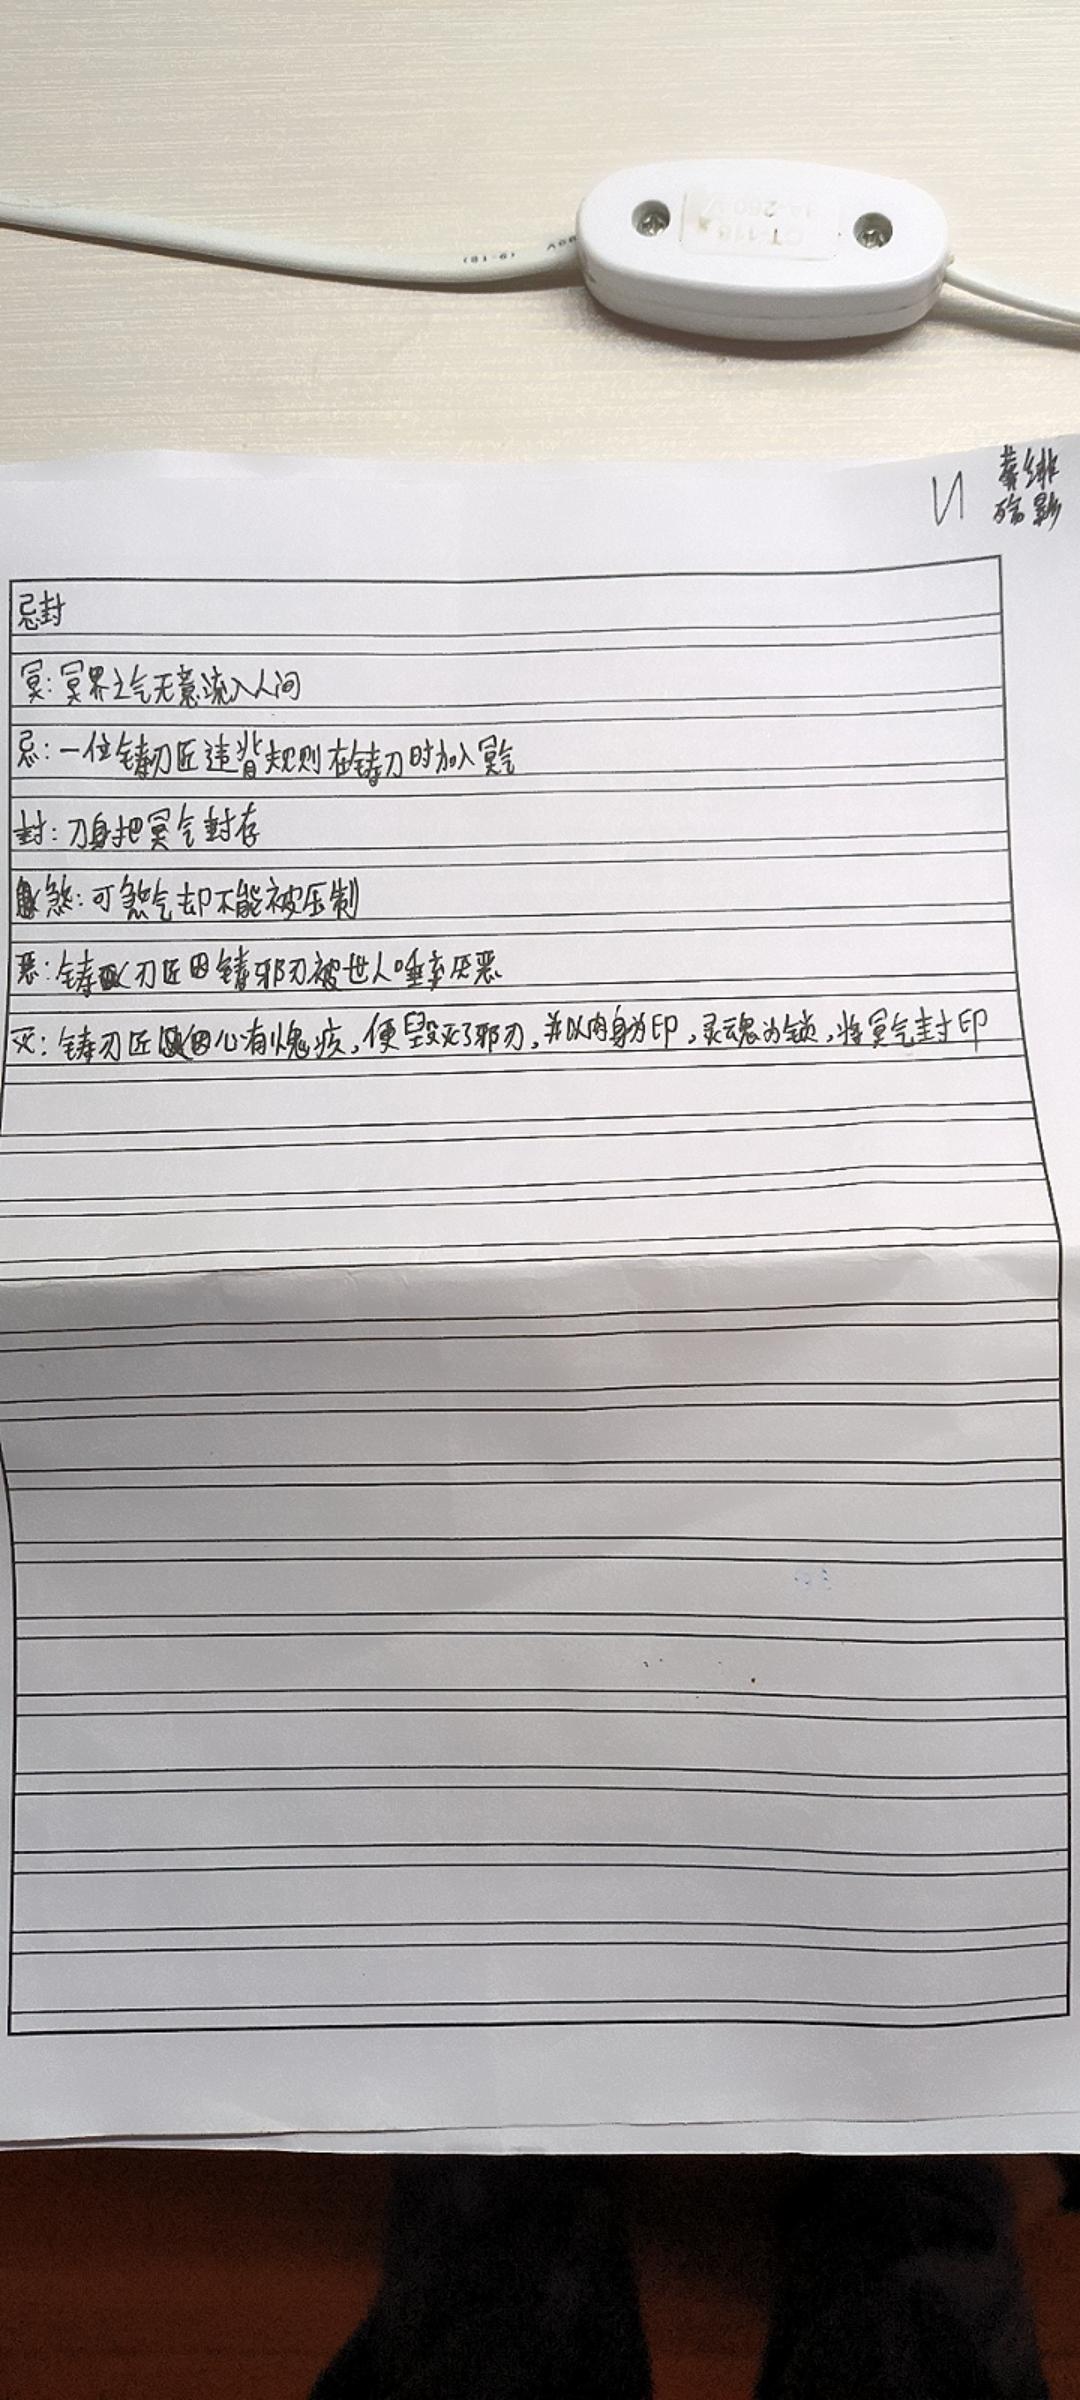 忌封
冥:冥界之气无意流入人间
忌:一位铸刃匠违背规则在铸刀时加入冥气
封:刀身把冥气封存
煞:可煞气却不能被压制
恶:铸刃匠因铸邪刃被世人唾弃厌恶
灭:铸刃匠因心有愧疚,便毁灭了邪刃,并以肉身为印,灵魂为锁,将冥气封印